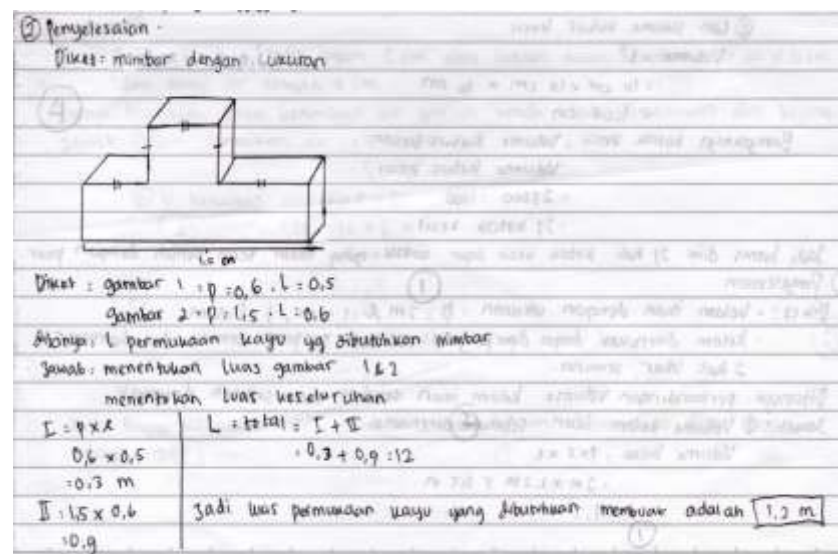 ③ Penyelesaian -
Diket = mimbar dengan ukuran
4
m
Diket : gambar 1 : p = 0,6 . L = 0,5
1
gambar 2 = p : 1,5 . L : 0,6
L permukaan kayu yg dibutuhkan mimbar
Jawab : menentukan Luas gambar 1 & 2
menentukan Luas keseluruhan
I = p x l
L = total = I + II
0,6 x 0,5
= 0,3 + 0,9 = 12
= 0,3 m
II : 1,5 x 0,6
Jadi luas permukaan kayu yang dibutuhkan membuat adalah 1,2 m
= 0,9
1